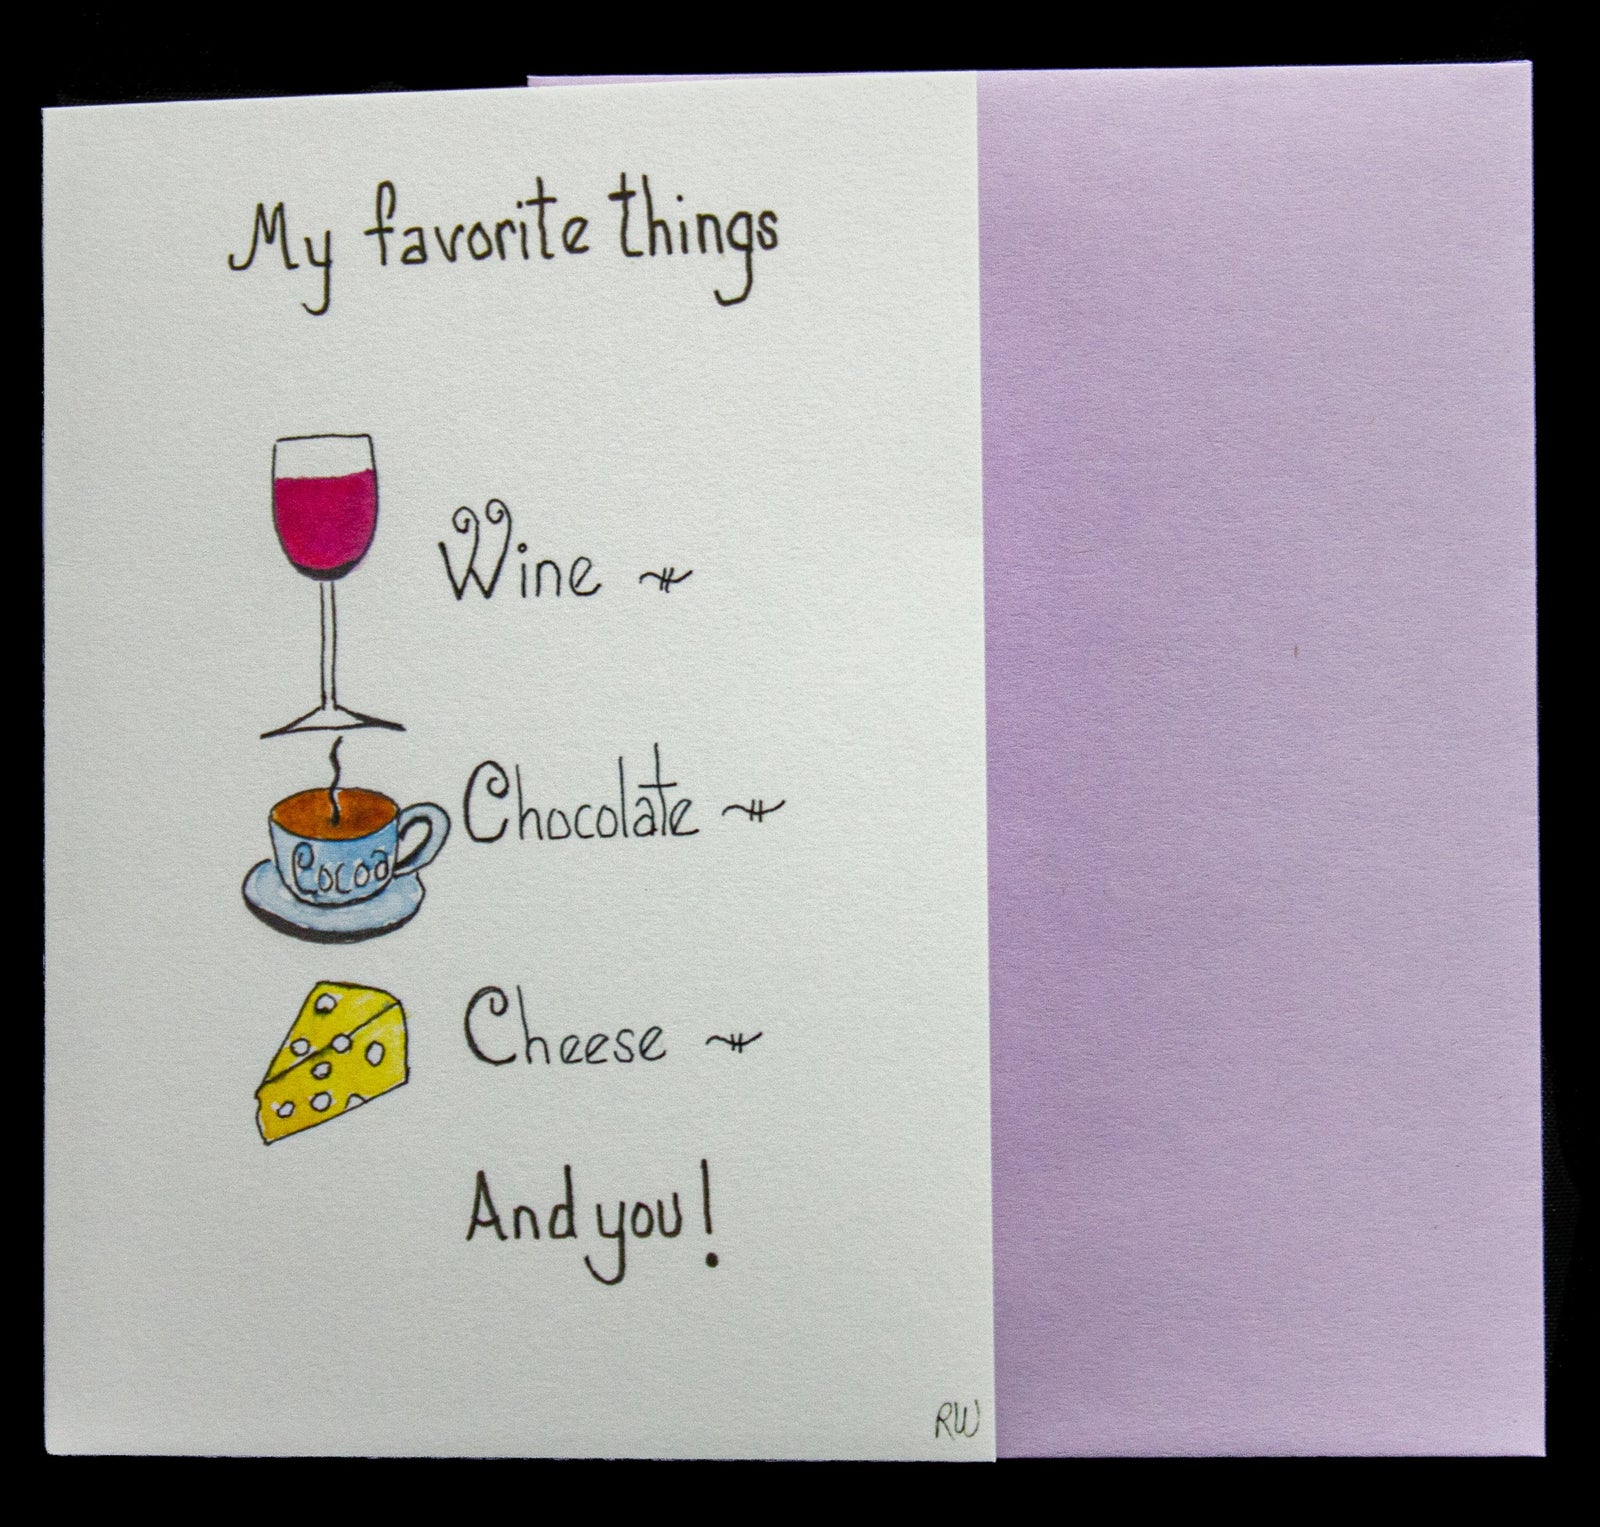 My favorite things
Wine
Chocolate
Cocoa
Cheese
And you!
RW